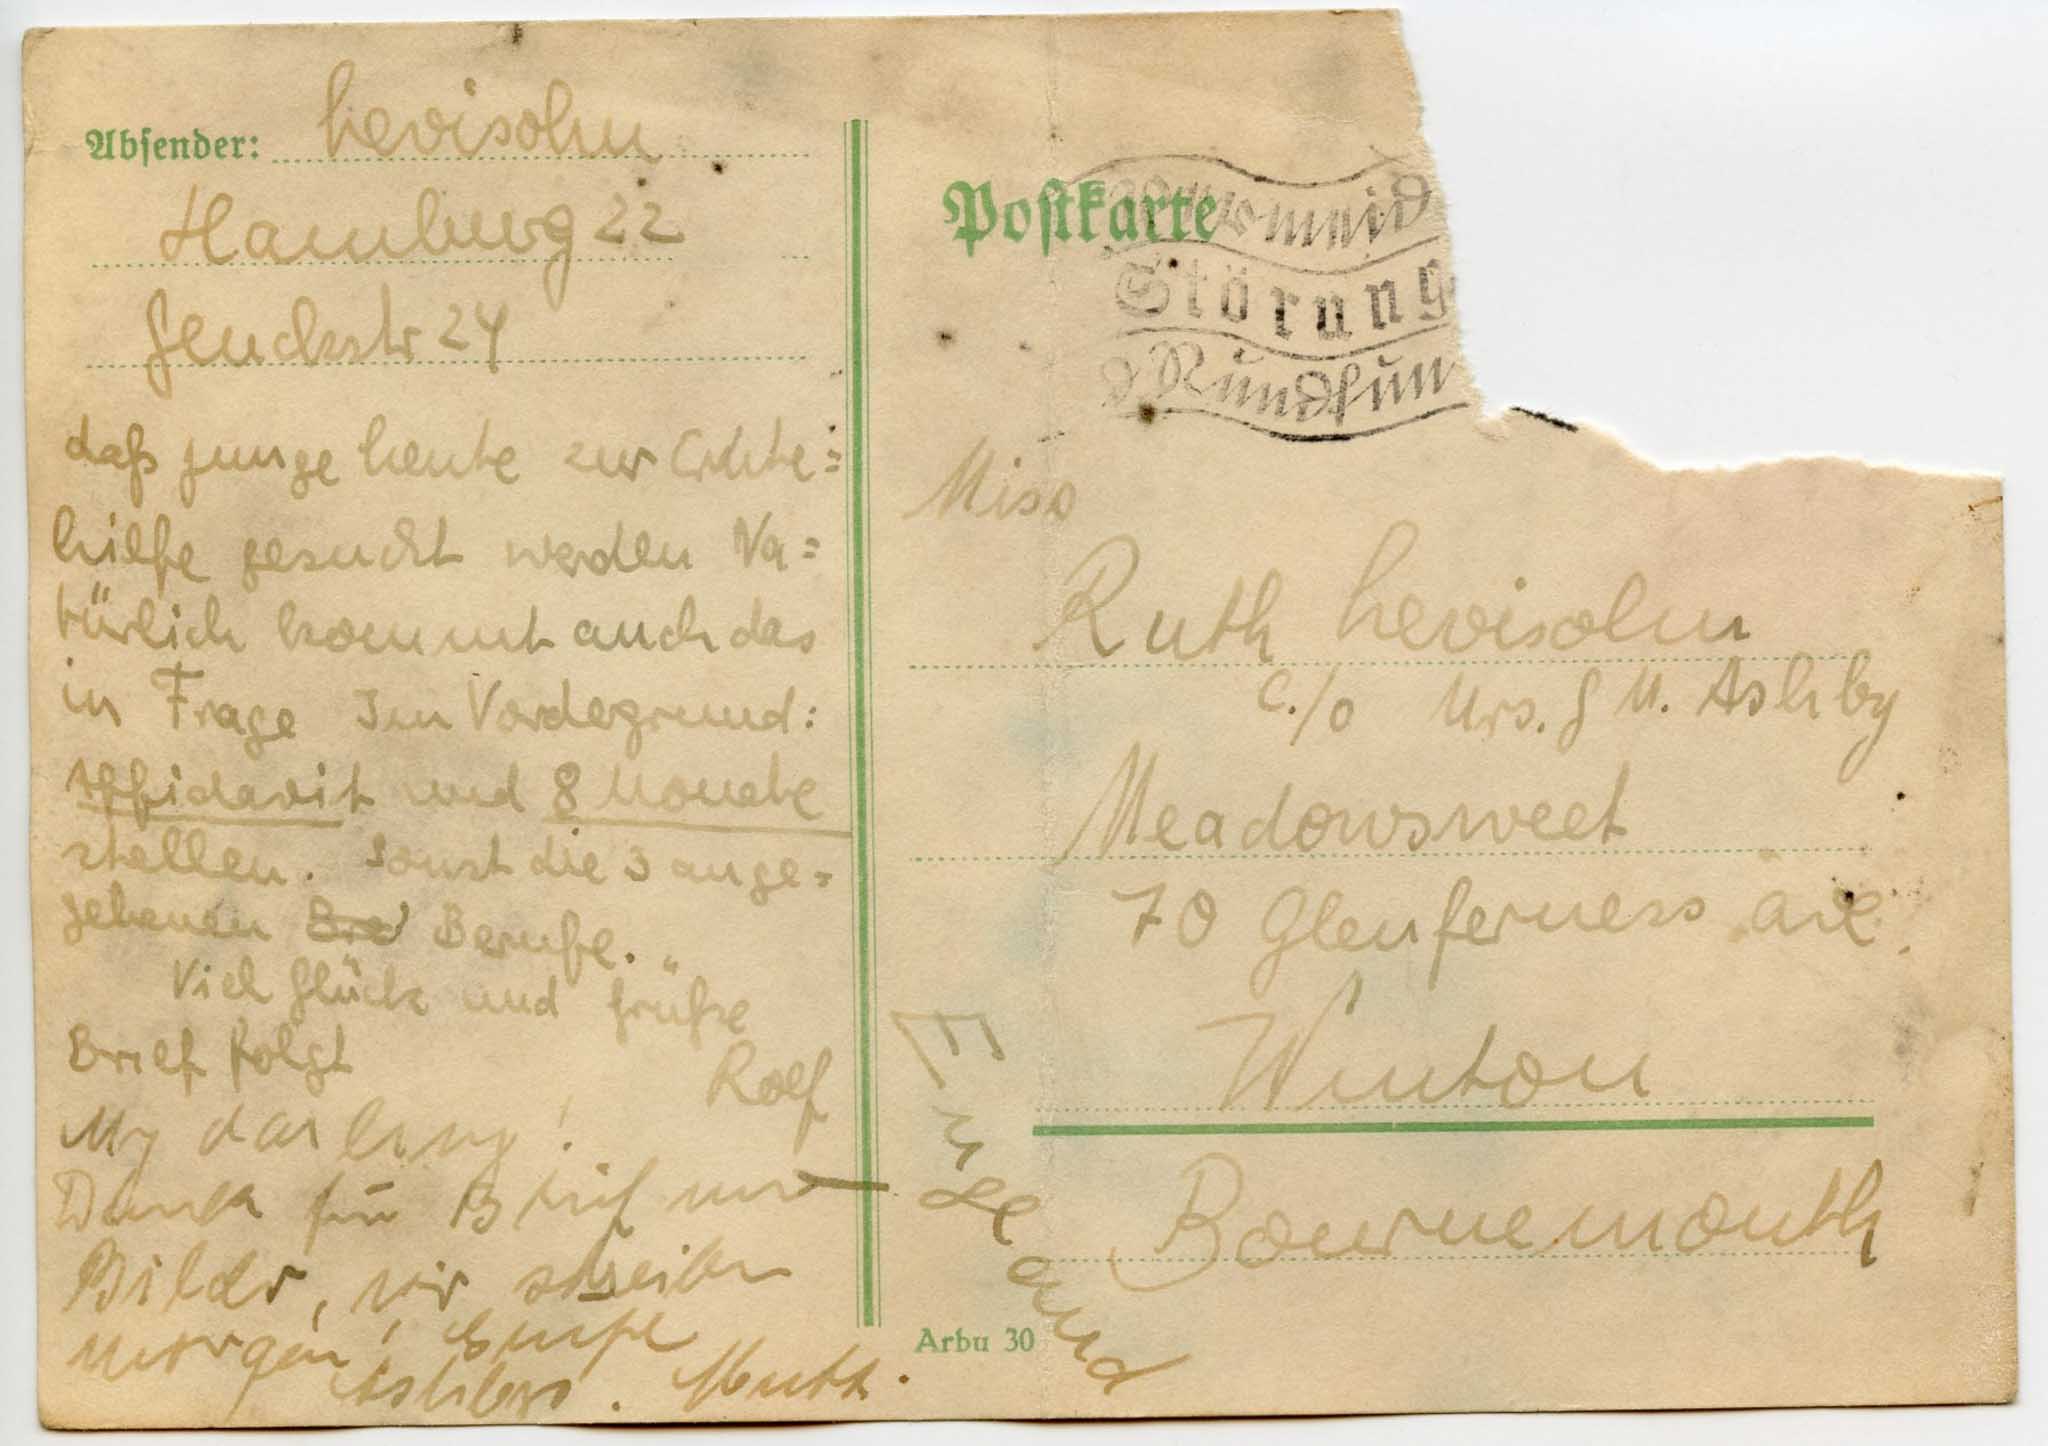 Absender: Levisohn
Hamburg 22
Genckstr 24
daß junge heute zur Ernte=
hilfe gesucht werden Na=
türlich kommt auch das
in Frage Im Vordergrund:
Affidavit und 8 Monate
stellen. sonst die 3 ange=
gebenen Berufe.
Viel Glück und Grüße
Brief folgt
Rolf
My darling!
Dank für Brief und
Bilder, wir schreiben
morgen!
Ashbys. Mutti.
Postkarte
Störung
d Rundfun
Miss
Ruth Levisohn
c./o Mrs. G M. Ashby
Meadowsweet
70 Glenferness ave.
Winton
Bournemouth
England
Arbu 30